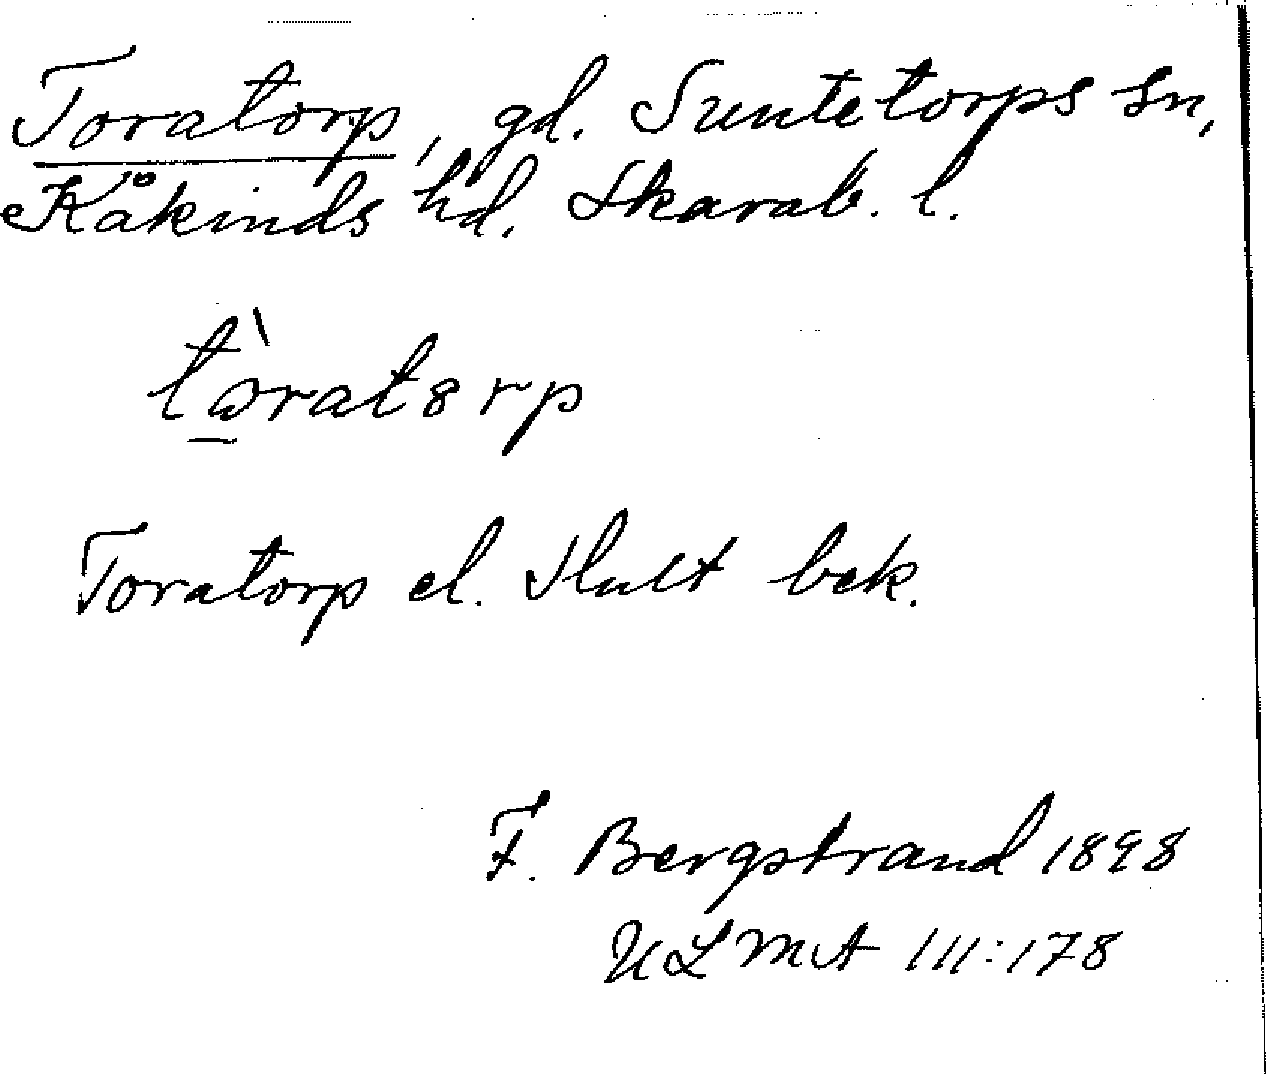 Toratorp, gd. Suntetorps sn,
Kåkinds hd. Skarab. l.
tòratȣrp
Toratorp el. Hult bek.
F. Bergstrand 1898
ULMA 111:178